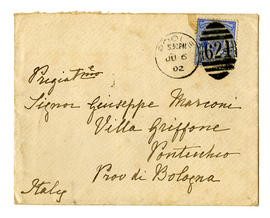 POOLE
5.30PM
JU 6
02
624
Pregiatmo
Signor Giuseppe Marconi
Villa Griffone
Pontecchio
Prov di Bologna
Italy